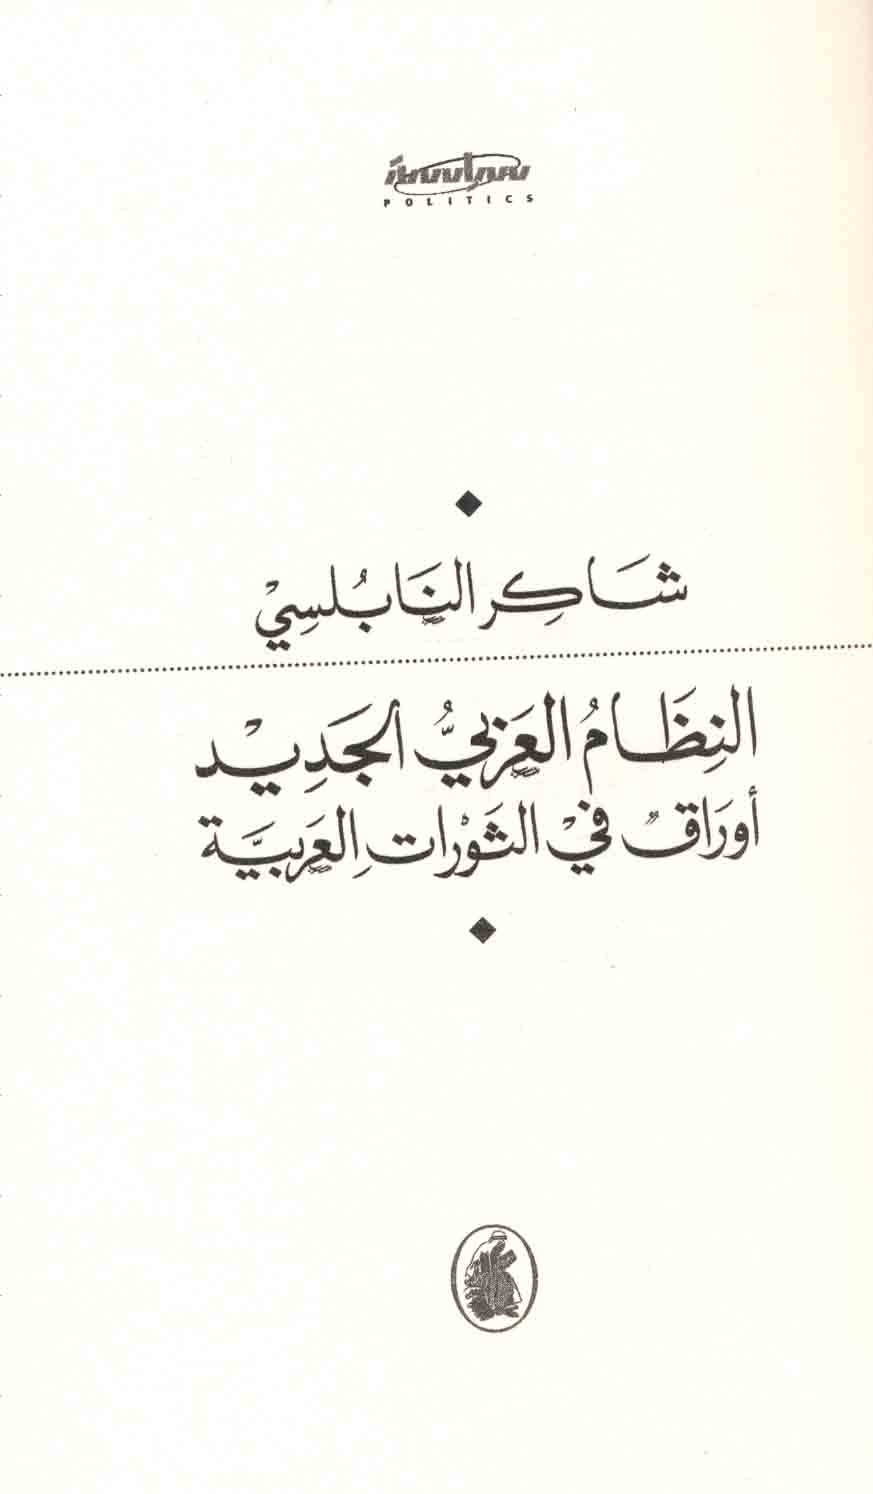 سياسة
POLITICS
شَاكِر النَابُلسِيْ
النِظَامُ العَرَبيُّ الجَدِيْد
أورَاقٌ فيْ الثَوْرَات العَربيَّة